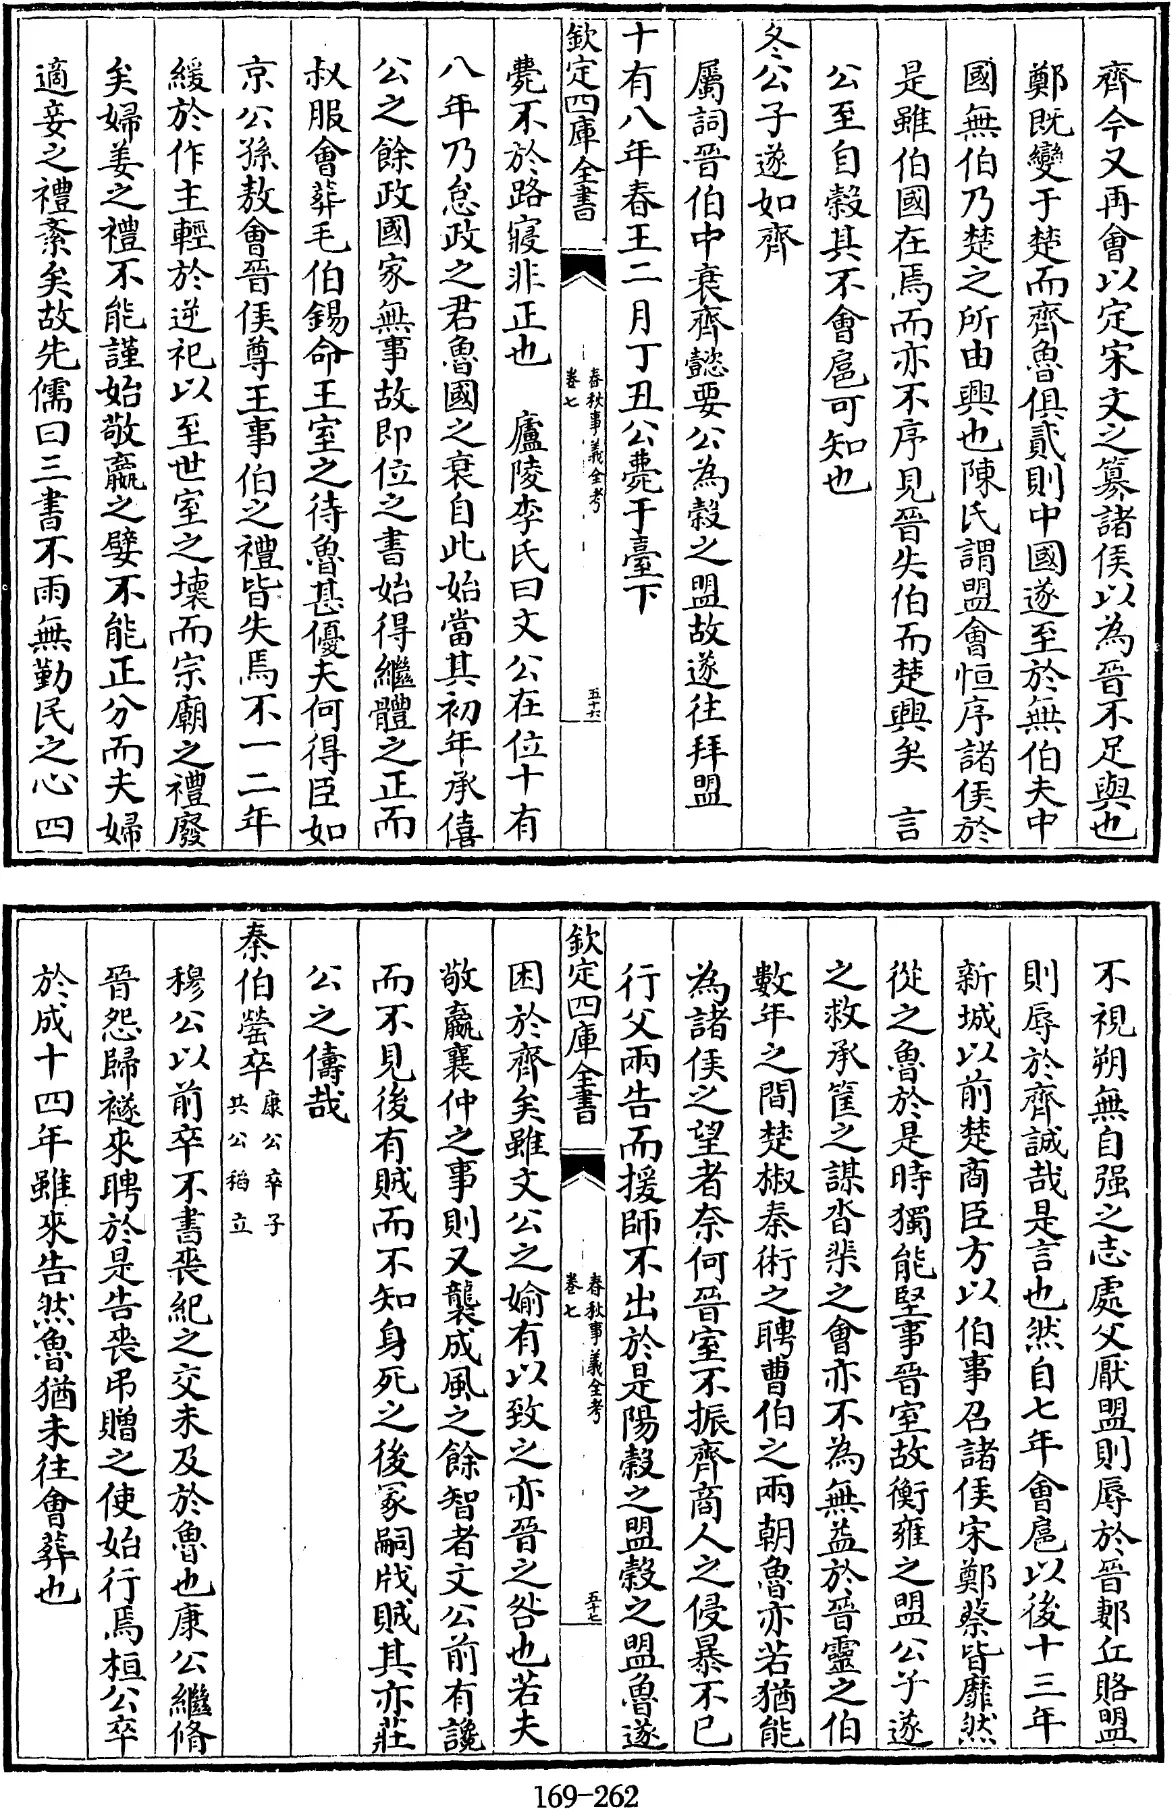 齊今又再會以定宋文之篡諸侯以為晉不足與也
鄭既變于楚而齊魯俱貳則中國遂至於無伯夫中
國無伯乃楚之所由興也陳氏謂盟會恒序諸侯於
是雖伯國在焉而亦不序見晉失伯而楚興矣　言
公至自穀其不會扈可知也
冬公子遂如齊
屬詞晉伯中衰齊懿要公為穀之盟故遂往拜盟
十有八年春王二月丁丑公薨于臺下
欽定四庫全書
春秋事義全考
卷七
五十六
薨不於路寢非正也　廬陵李氏曰文公在位十有
八年乃怠政之君魯國之衰自此始當其初年承僖
公之餘政國家無事故即位之書始得繼體之正而
叔服會葬毛伯錫命王室之待魯甚優夫何得臣如
京公孫敖會晉侯尊王事伯之禮皆失焉不一二年
緩於作主輕於逆祀以至世室之壞而宗廟之禮廢
矣婦姜之禮不能謹始敬嬴之嬖不能正分而夫婦
適妾之禮紊矣故先儒曰三書不雨無勤民之心四
不視朔無自强之志處父厭盟則辱於晉郪丘賂盟
則辱於齊誠哉是言也然自七年會扈以後十三年
新城以前楚商臣方以伯事召諸侯宋鄭蔡皆靡然
從之魯於是時獨能堅事晉室故衡雍之盟公子遂
之救承筐之謀沓棐之會亦不為無益於晉靈之伯
數年之間楚椒秦術之聘曹伯之兩朝魯亦若猶能
為諸侯之望者奈何晉室不振齊商人之侵暴不已
行父兩告而援師不出於是陽穀之盟穀之盟魯遂
欽定四庫全書
春秋事義全考
卷七
五十七
困於齊矣雖文公之媮有以致之亦晉之咎也若夫
敬嬴襄仲之事則又襲成風之餘智者文公前有讒
而不見後有賊而不知身死之後冢嗣戕賊其亦莊
公之儔哉
秦伯罃卒
康公卒子
共公稻立
穆公以前卒不書喪紀之交未及於魯也康公繼脩
晉怨歸襚來聘於是告喪弔贈之使始行焉桓公卒
於成十四年雖來告然魯猶未往會葬也
169-262